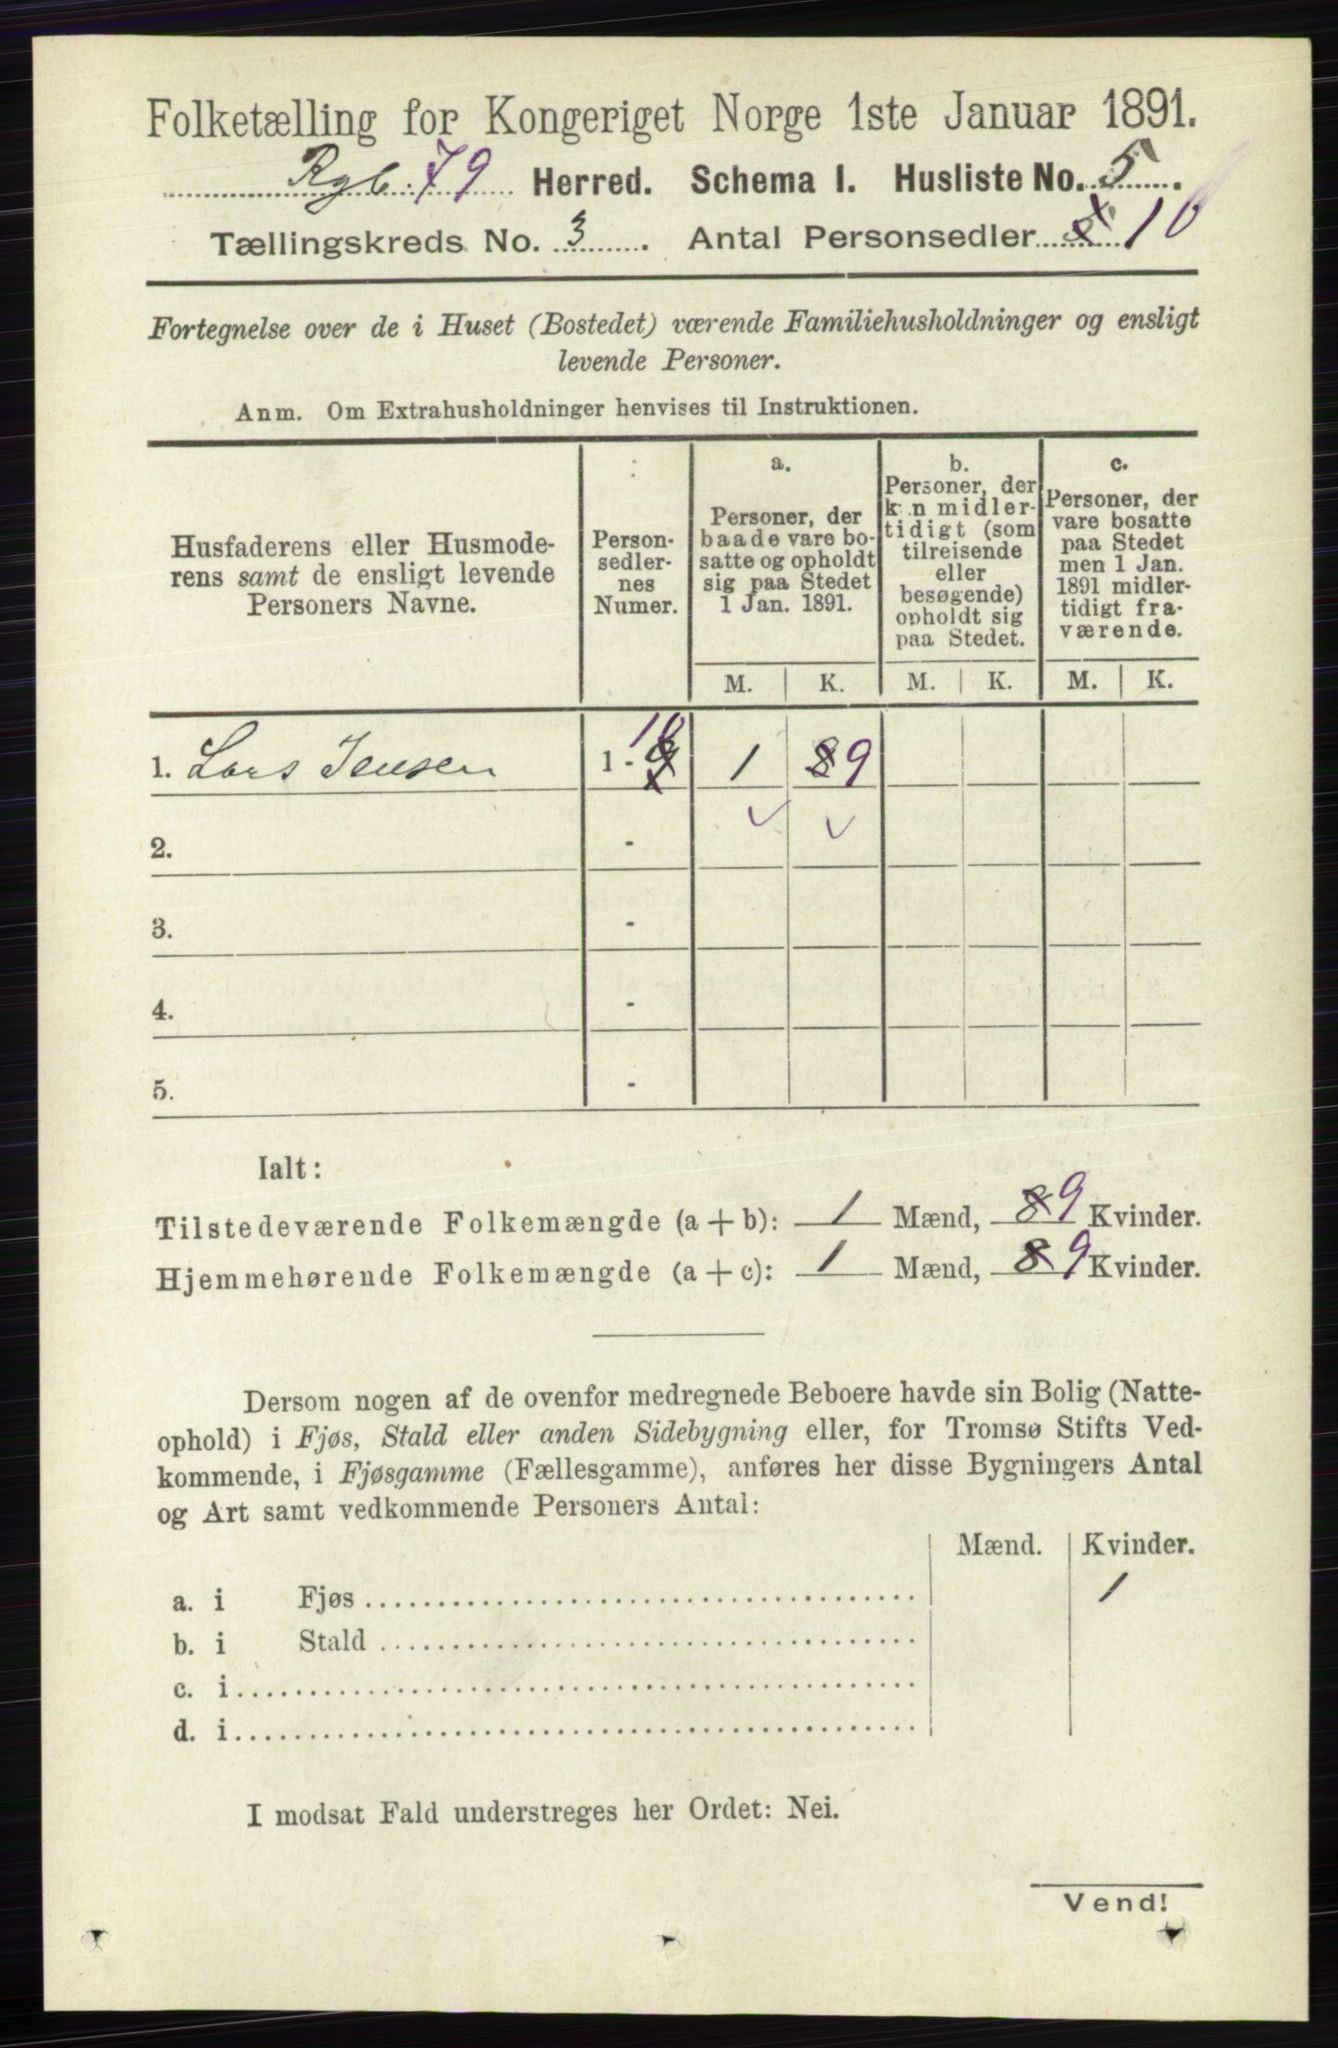 Folketælling for Kongeriget Norge 1ste Januar 1891.
Rgb. 79 Herred. Schema I. Husliste No. 5.
Tællingskreds No. 3. Antal Personsedler 10
Fortegnelse over de i Huset (Bostedet) værende Familiehusholdninger og ensligt
levende Personer.
Anm. Om Extrahusholdninger henvises til Instruktionen.
Husfaderens eller Husmode-
rens samt de ensligt levende
Personers Navne.
Person-
sedler-
nes
Numer.
a.
Personer, der
baade vare bo-
satte og opholdt
sig paa Stedet
1 Jan. 1891.
b.
Personer, der
kun midler-
tidigt (som
tilreisende
eller
besøgende)
opholdt sig
paa Stedet.
c.
Personer, der
vare bosatte
paa Stedet
men 1 Jan.
1891 midler-
tidigt fra-
værende.
M. K. M. K. M. K.
1. Lars Jensen 1 - 9 10 1 8 9
2. -
3. -
4. -
5. -
Ialt:
Tilstedeværende Folkemængde (a + b): 1 Mænd, 8 9 Kvinder.
Hjemmehørende Folkemængde (a + c): 1 Mænd, 8 9 Kvinder.
Dersom nogen af de ovenfor medregnede Beboere havde sin Bolig (Natte-
ophold) i Fjøs, Stald eller anden Sidebygning eller, for Tromsø Stifts Ved-
kommende, i Fjøsgamme (Fællesgamme), anføres her disse Bygningers Antal
og Art samt vedkommende Personers Antal:
Mænd. Kvinder.
a. i Fjøs 1
b. i Stald
c. i
d. i
I modsat Fald understreges her Ordet: Nei.
Vend!